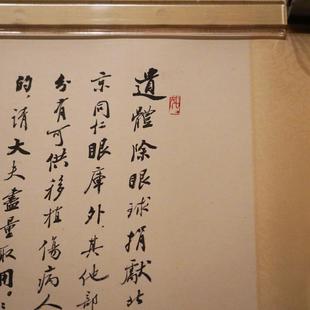 遺體除眼球捐獻北
京同仁眼庫外，其他部
分有可供移植傷病人
的，请大夫盡量取用。